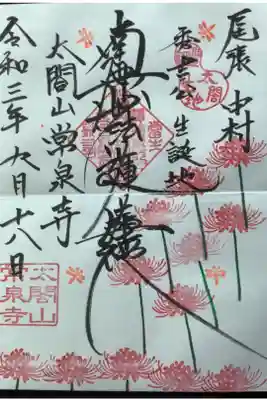 尾張中村
秀吉公生誕地
南無妙法蓮華経
太閤山常泉寺
令和三年九月十八日
太閤山
常泉寺